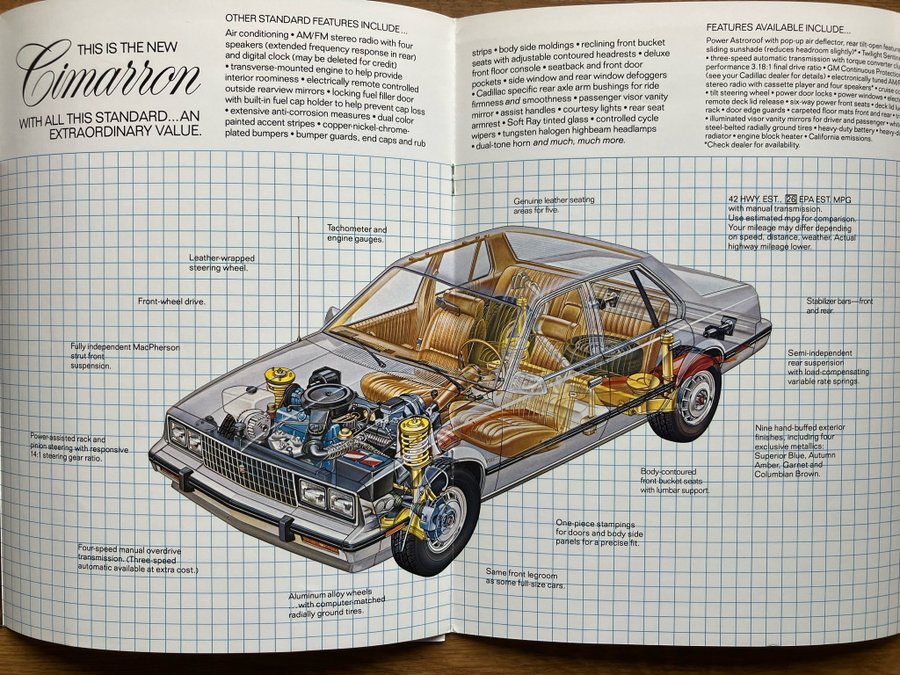 THIS IS THE NEW
Cimarron
WITH ALL THIS STANDARD...AN
EXTRAORDINARY VALUE.
OTHER STANDARD FEATURES INCLUDE...
Air conditioning • AM/FM stereo radio with four
speakers (extended frequency response in rear)
and digital clock (may be deleted for credit)
• transverse-mounted engine to help provide
interior roominess • electrically remote controlled
outside rearview mirrors • locking fuel filler door
with built-in fuel cap holder to help prevent cap loss
• extensive anti-corrosion measures • dual color
painted accent stripes • copper-nickel-chrome-
plated bumpers • bumper guards, end caps and rub
strips • body side moldings • reclining front bucket
seats with adjustable contoured headrests • deluxe
front floor console • seatback and front door
pockets • side window and rear window defoggers
• Cadillac specific rear axle arm bushings for ride
firmness and smoothness • passenger visor vanity
mirror • assist handles • courtesy lights • rear seat
armrest • Soft Ray tinted glass • controlled cycle
wipers • tungsten halogen highbeam headlamps
• dual-tone horn and much, much more.
FEATURES AVAILABLE INCLUDE...
Power Astroroof with pop-up air deflector, rear tilt-open feature
sliding sunshade (reduces headroom slightly)* • Twilight Sentinel
• three-speed automatic transmission with torque converter
performance 3.18:1 final drive ratio • GM Continuous Protection
(see your Cadillac dealer for details) • electronically tuned AM/
stereo radio with cassette player and four speakers* • cruise
• tilt steering wheel • power door locks • power windows •
remote deck lid release • six-way power front seats • deck lid
rack • door edge guards • carpeted floor mats front and rear •
• illuminated visor vanity mirrors for driver and passenger •
steel-belted radially ground tires • heavy-duty battery • heavy-
radiator • engine block heater • California emissions.
*Check dealer for availability.
Genuine leather seating
areas for five.
42 HWY. EST., 26 EPA EST. MPG
with manual transmission.
Use estimated mpg for comparison.
Your mileage may differ depending
on speed, distance, weather. Actual
highway mileage lower.
Tachometer and
engine gauges.
Leather-wrapped
steering wheel.
Front-wheel drive.
Stabilizer bars—front
and rear.
Fully independent MacPherson
strut front
suspension.
Semi-independent
rear suspension
with load-compensating
variable rate springs.
Power-assisted rack and
pinion steering with responsive
14:1 steering gear ratio.
Nine hand-buffed exterior
finishes, including four
exclusive metallics:
Superior Blue, Autumn
Amber, Garnet and
Columbian Brown.
Body-contoured
front bucket seats
with lumbar support.
One-piece stampings
for doors and body side
panels for a precise fit.
Four-speed manual overdrive
transmission. (Three-speed
automatic available at extra cost.)
Same front legroom
as some full-size cars.
Aluminum alloy wheels
...with computer-matched
radially ground tires.